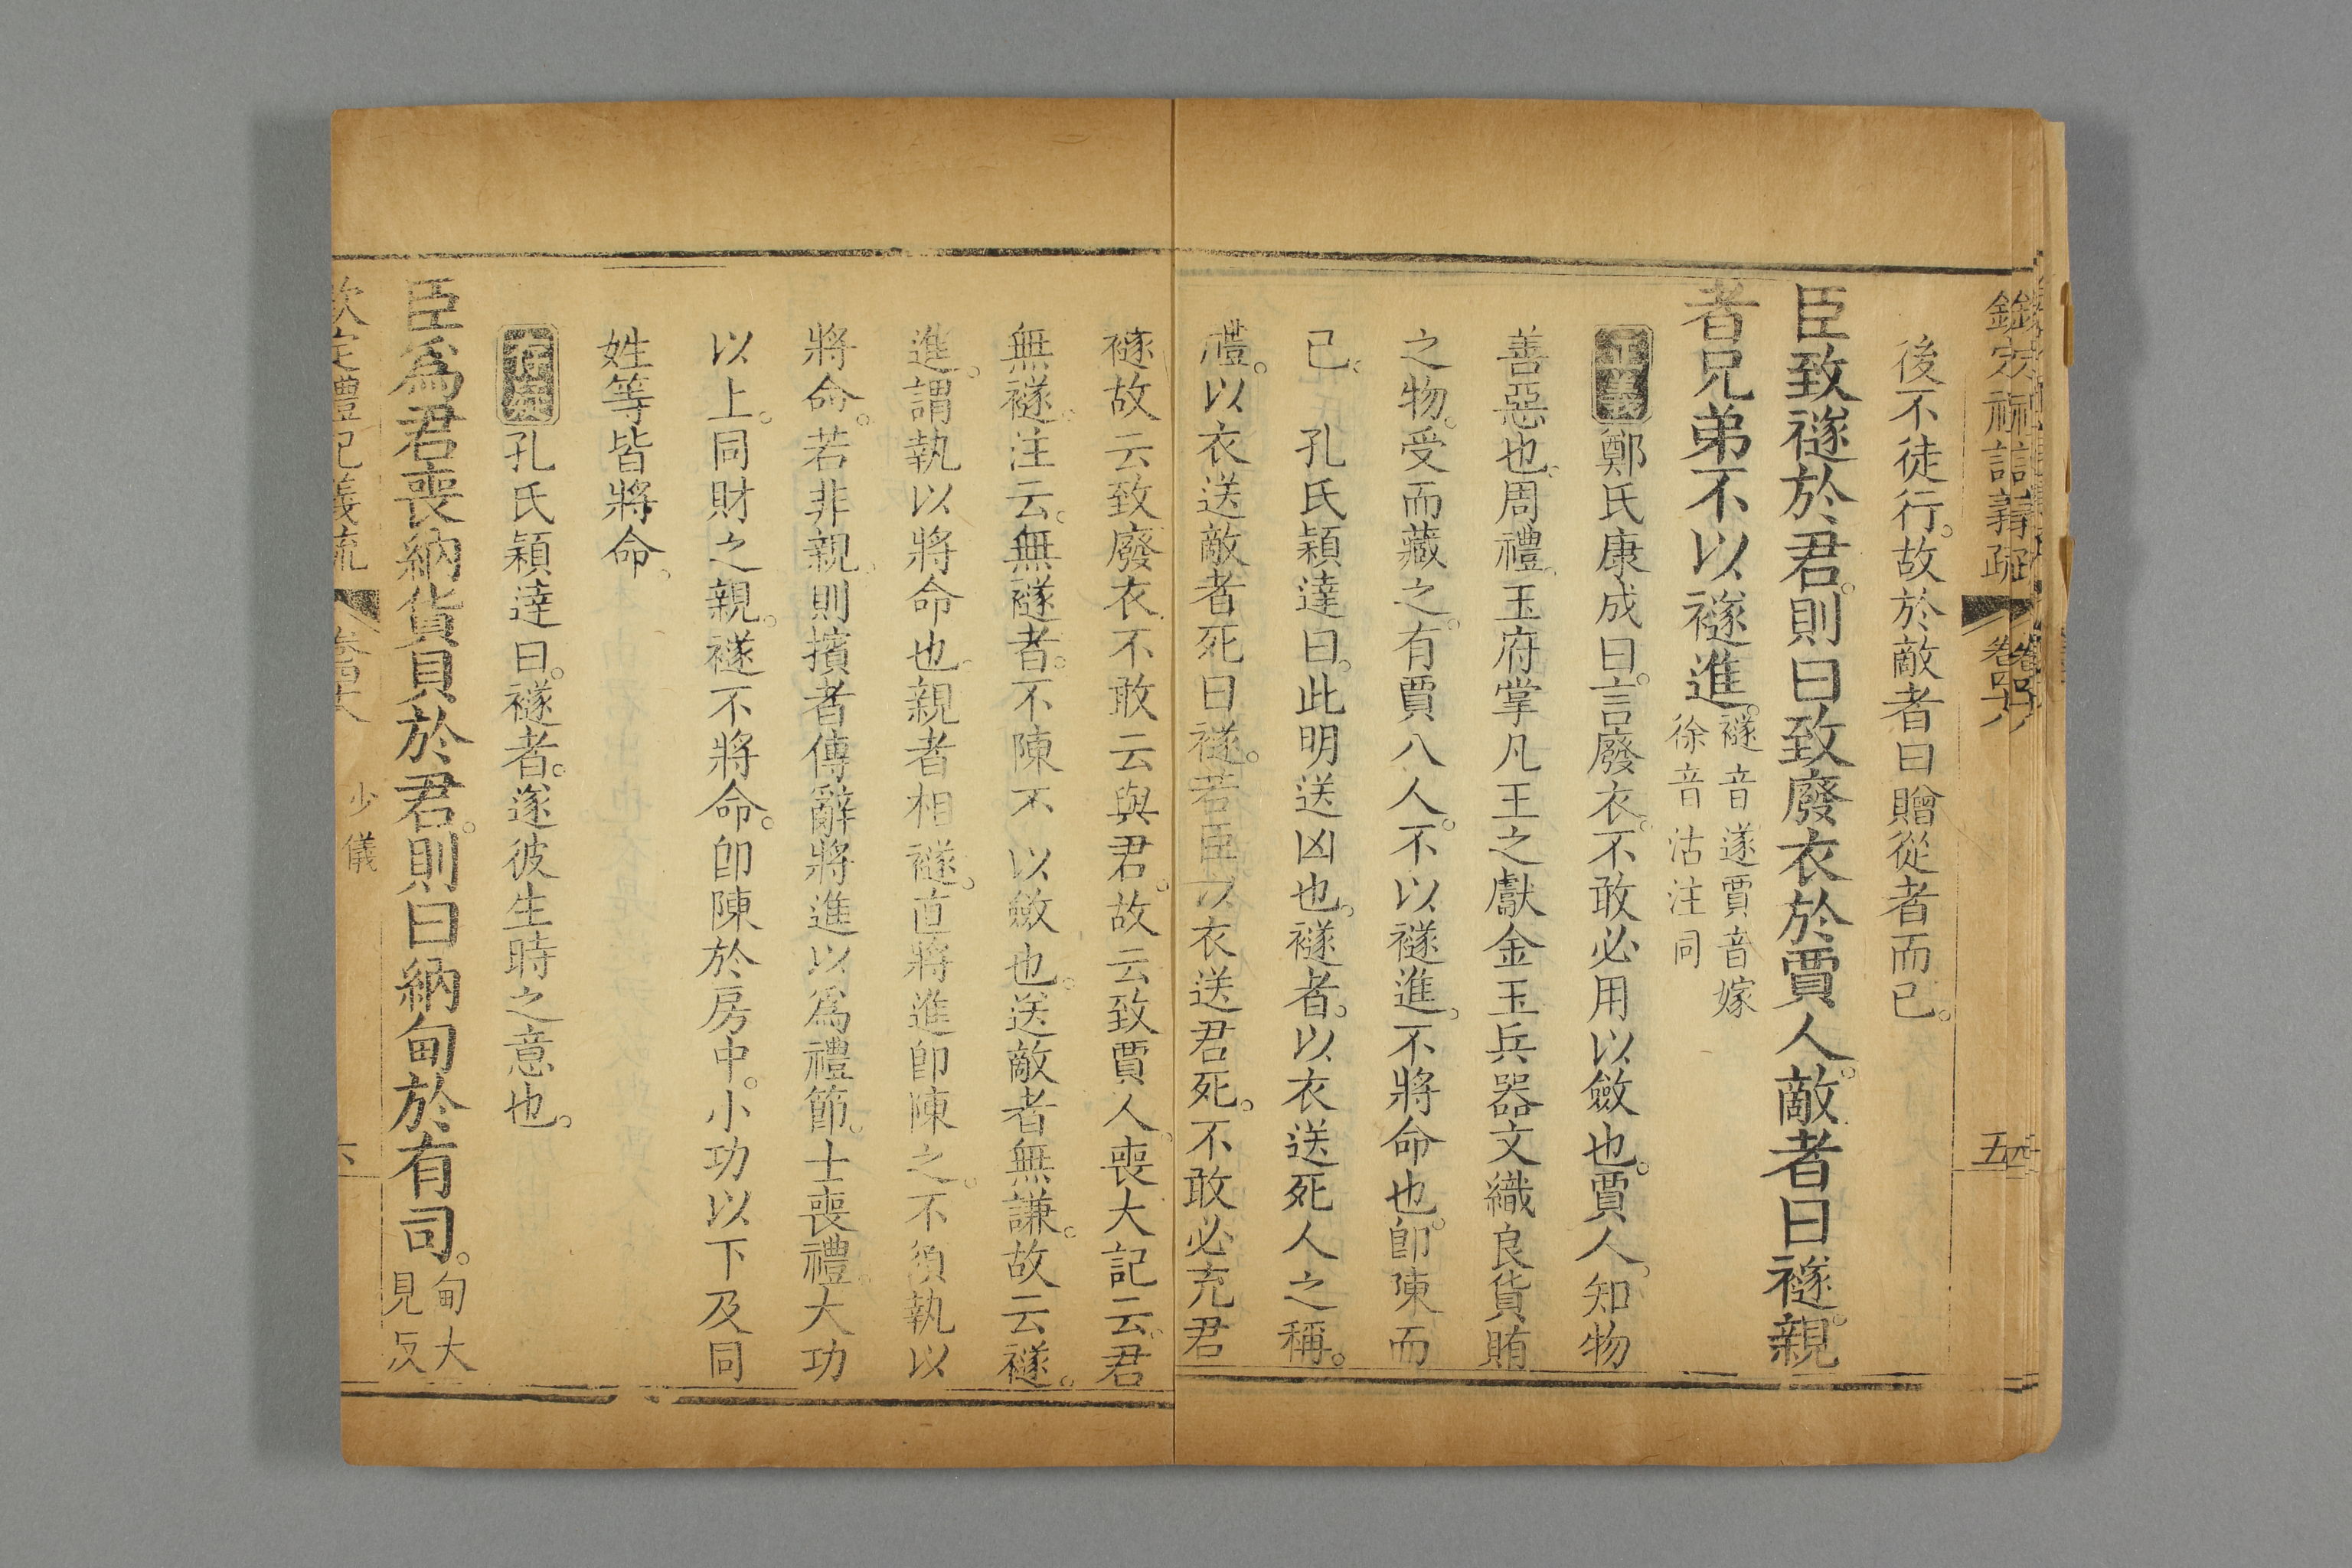 後不徒行。故於敵者曰贈從者而已。
臣致襚於君。則曰致廢衣於賈人。敵者曰襚。親
者兄弟不以襚進。襚音遂賈音嫁
徐音沽注同
正義鄭氏康成曰。言廢衣。不敢必用以斂也。賈人。知物
善惡也。周禮。玉府掌凡王之獻金玉兵器文織良貨賄
之物。受而藏之。有賈八人。不以襚進。不將命也。卽陳而
已。 孔氏穎達曰。此明送凶也。襚者。以衣送死人之稱。
禮。以衣送敵者死曰襚。若臣以衣送君死。不敢必充君
襚故云致廢衣不敢云與君。故云致賈人。喪大記云。君
無襚。注云。無襚者。不陳不以斂也。送敵者無謙。故云襚。
進。謂執以將命也。親者相襚。直將進卽陳之。不須執以
將命。若非親。則擯者傳辭將進以爲禮節。士喪禮。大功
以上。同財之親。襚不將命。卽陳於房中。小功以下及同
姓等皆將命。
存疑孔氏穎達曰。襚者。遂彼生時之意也。
臣爲君喪納貨貝於君。則曰納甸於有司。甸大
見反
欽定禮記義疏 卷四十八 少儀